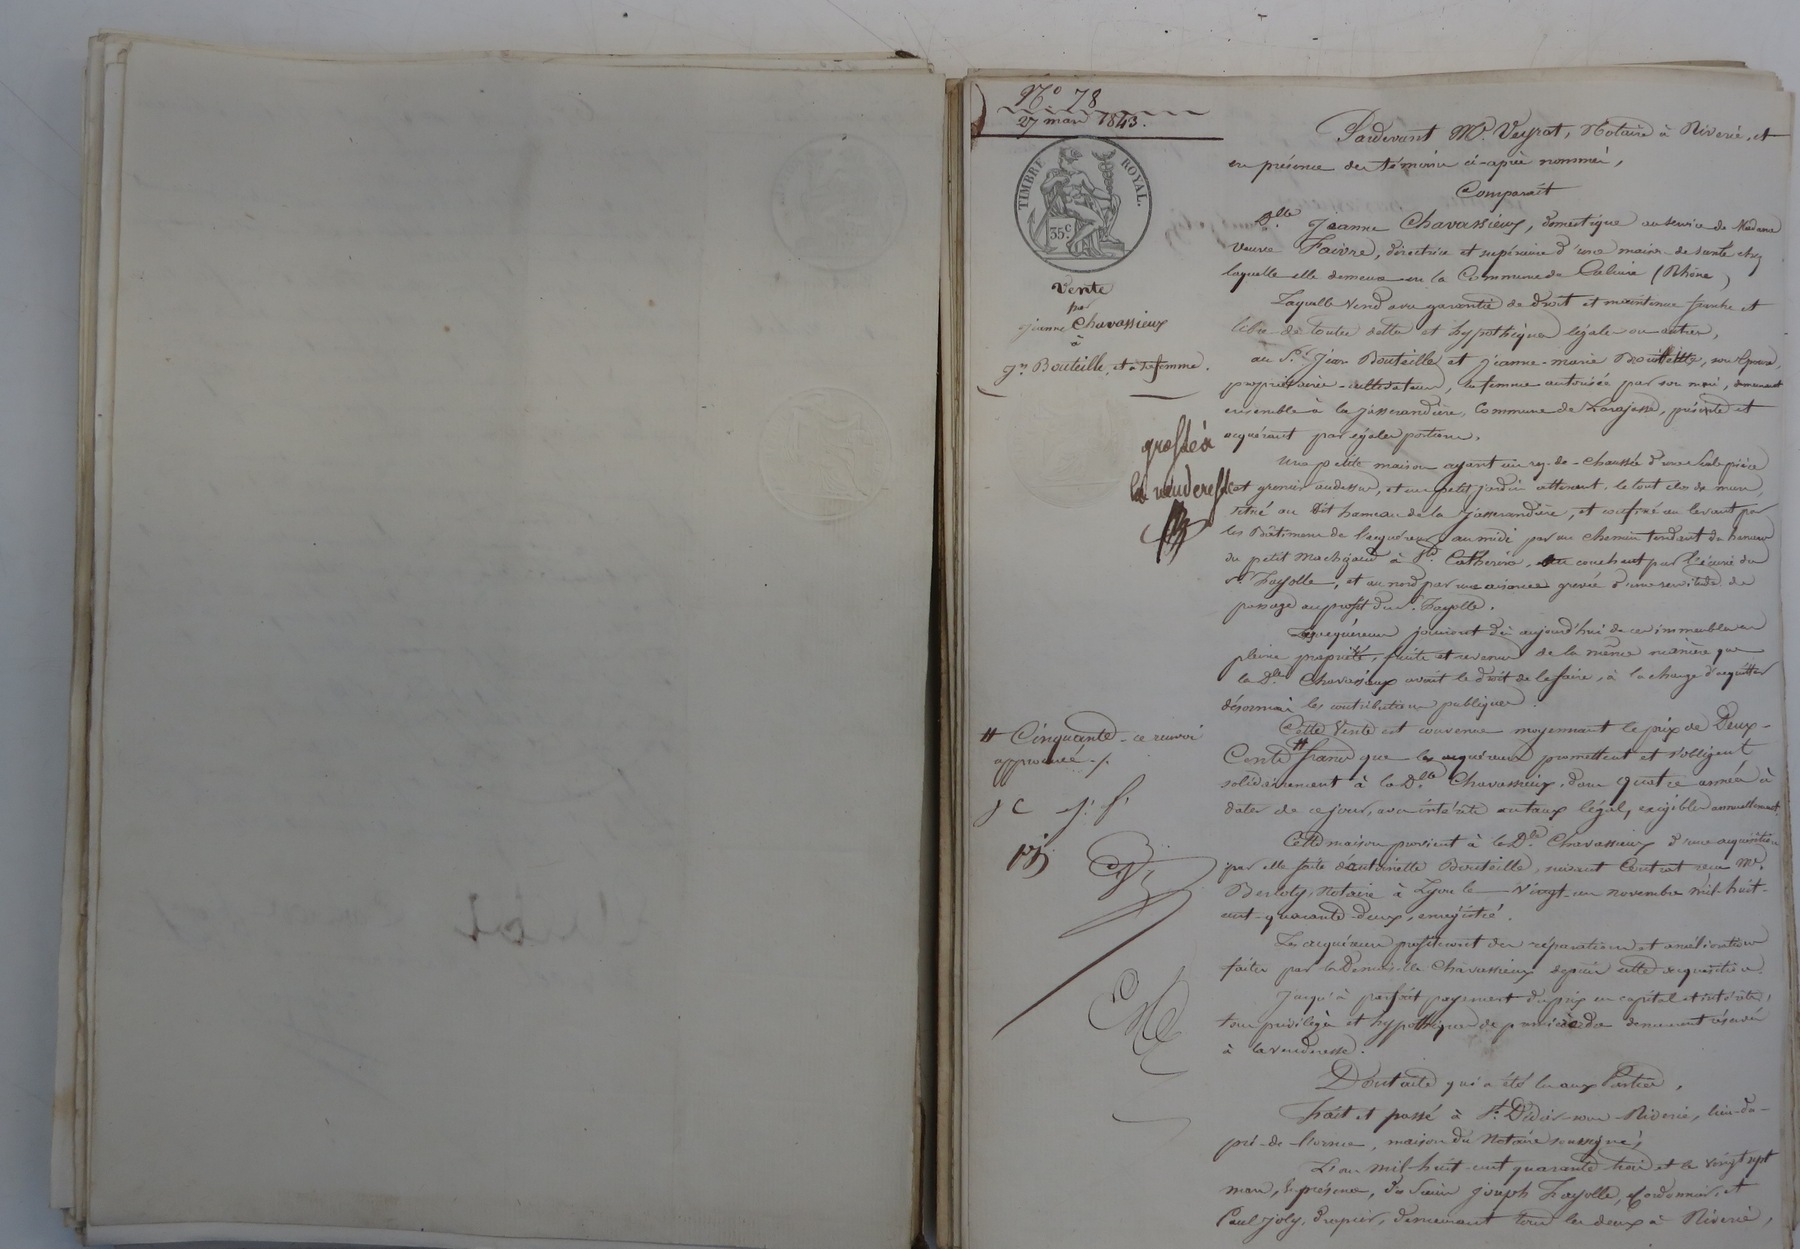 N° 78
27 mars 1843.
TIMBRE ROYAL.
35 c
Vente
par
jeanne Chavassieux
à
jn Bouteille, et sa femme.
grossé à
la venderesse
# Cinquante - ce renvoi
approuvé ./.
j c j. f.
Pardevant Me Veyrat, Notaire à Riverie, et
en présence des témoins ci-après nommés,
Comparaît
Dlle Jeanne Chavassieux, domestique au service de Madame
veuve Faivre, directrice et supérieure d'une maison de santé chez
laquelle elle demeure en la Commune de Caluire (Rhône)
Laquelle vend avec garantie de droit et maintenue franche et
libre de toutes dettes et hypothèques légales ou autres,
au Sr Jean Bouteille et jeanne-marie Bouteille, son épouse,
propriétaires-cultivateurs, la femme autorisée par son mari, demeurant
ensemble à la jasserandière, Commune de Larajasse, présents et
acquérant par égales portions.
Une petite maison ayant un rez-de-chaussée d'une seule pièce
et grenier audessus, et un petit jardin attenant, le tout clos de murs,
situé au dit hameau de la jasserandière, et confiné au levant par
les Bâtiments de l'acquéreur, au midi par un chemin tendant du hameau
du petit Machizaud à Ste Catherine, au couchant par l'écurie du
Sr Fayolle, et au nord par une aisance grevée d'une servitude de
passage au profit du Sr Fayolle.
Les acquéreurs jouiront dès aujourd'hui de ces immeubles en
pleine propriété, fruits et revenus de la même manière que
la Dlle Chavassieux avait le droit de le faire, à la charge d'acquitter
désormais les contributions publiques.
Cette Vente est convenue moyennant le prix de Deux-
Cents # francs que les acquéreurs promettent et s'obligent
solidairement à la Dlle Chavassieux, dans quatre années à
dater de ce jour, avec intérêts au taux légal, exigibles annuellement.
Cette maison provient à la Dlle Chavassieux d'une acquisition
par elle faite d'antoinette Bouteille, suivant Contrat reçu Me
Berloty, Notaire à Lyon le Vingt-un novembre mil-huit-
cent-quarante-deux, enregistré.
Les acquéreurs profiteront des réparations et améliorations
faites par la Demoiselle Chavassieux depuis cette acquisition.
Jusqu'à parfait payement du prix en capital et intérêts,
tous privilèges et hypothèques de demeurent réservés
à la venderesse.
Dont acte qui a été lu aux Parties,
Fait et passé à St Didier-sous-Riverie, lieu-du-
pré-de-l'orme, maison du Notaire soussigné,
L'an mil-huit-cent quarante trois et le vingt sept
mars, En présence, des Sieurs joseph Fayolle, Cordonnier, et
Paul joly, drapier, demeurant tous les deux à Riverie,